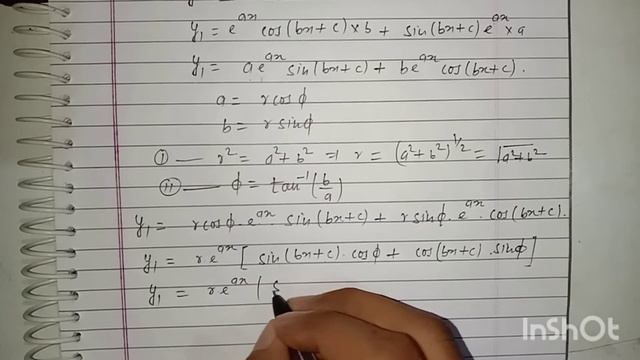 y₁ = e^ax cos(bx+c)×b + sin(bx+c)e^ax×a
y₁ = ae^ax sin(bx+c) + be^ax cos(bx+c).
a = r cosϕ
b = r sinϕ
(i) — r² = a²+b² ⇒ r = (a²+b²)^1/2 = √a²+b²
(ii) — ϕ = tan⁻¹(b/a)
y₁ = r cosϕ . e^ax . sin(bx+c) + r sinϕ . e^ax . cos(bx+c).
y₁ = re^ax [sin(bx+c) . cosϕ + cos(bx+c) . sinϕ]
y₁ = re^ax (
InShOt